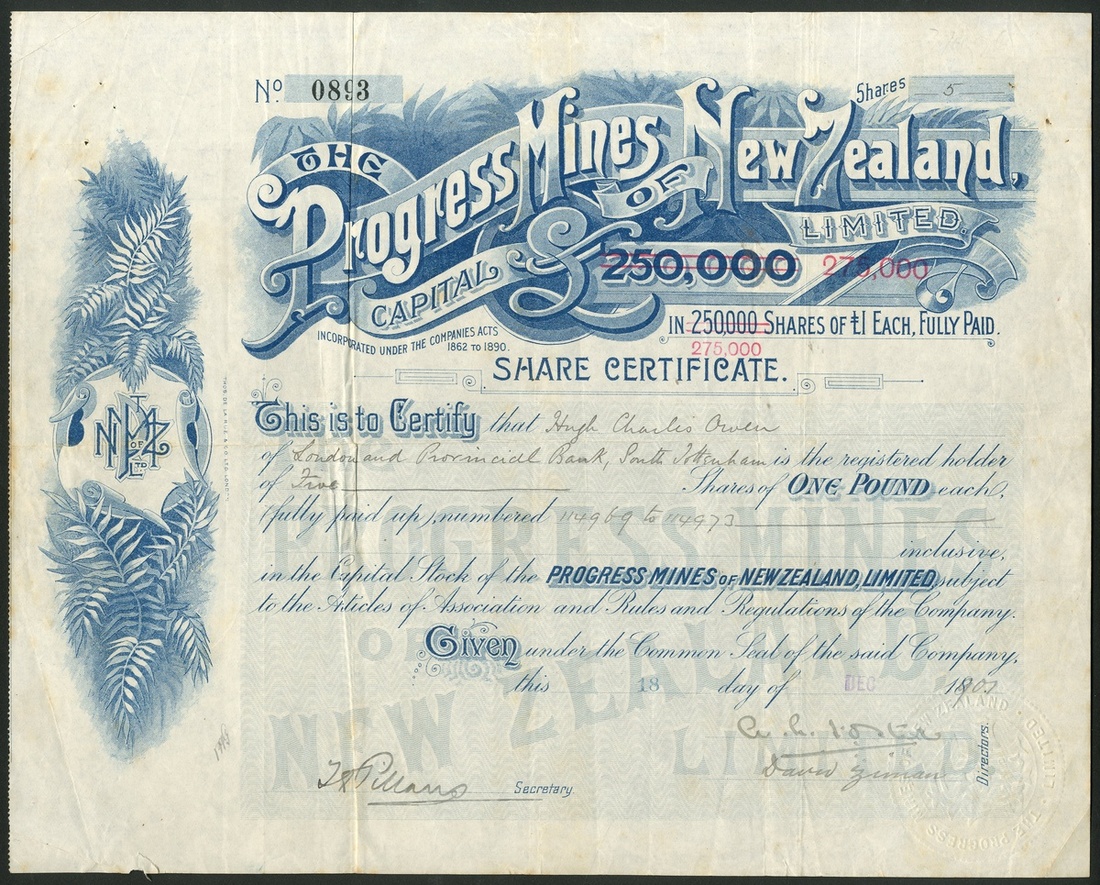 No. 0893
Shares 5
THE
Progress Mines OF New Zealand,
LIMITED.
CAPITAL £250,000 275,000
IN 250000 SHARES OF £1 EACH, FULLY PAID.
275,000
INCORPORATED UNDER THE COMPANIES ACTS
1862 TO 1890.
SHARE CERTIFICATE.
This is to Certify that Hugh Charles Owen
of London and Provincial Bank, South Tottenham is the registered holder
of Five Shares of ONE POUND each,
(fully paid up), numbered 114969 to 114973
inclusive,
in the Capital Stock of the PROGRESS MINES OF NEW ZEALAND, LIMITED, subject
to the Articles of Association and Rules and Regulations of the Company.
Given under the Common Seal of the said Company,
this 18 day of DEC 1901
David Ziman
Directors.
Secretary.
PROGRESS MINES
OF
NEW ZEALAND
LIMITED.
PM OF NZ LTD
THE PROGRESS MINES OF NEW ZEALAND LIMITED